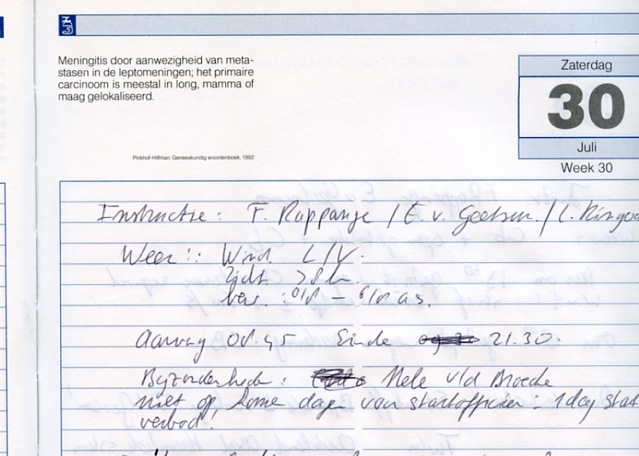 Meningitis door aanwezigheid van meta-
stasen in de leptomeningen; het primaire
carcinoom is meestal in long, mamma of
maag gelokaliseerd.
Pinkhof-Hilfman. Geneeskundig woordenboek, 1992
Zaterdag
30
Juli
Week 30
Instructie: F. Rappange / E. v. /
Weer: Wind L/V.
Zicht >8 k
bew. : 0/8 - 6/8 as.
Aanvang 08.45 Einde 21.30.
Bijzonderheden: Nele v/d Broeche
niet op komen dagen voor startofficier: 1 dag start
verbod!